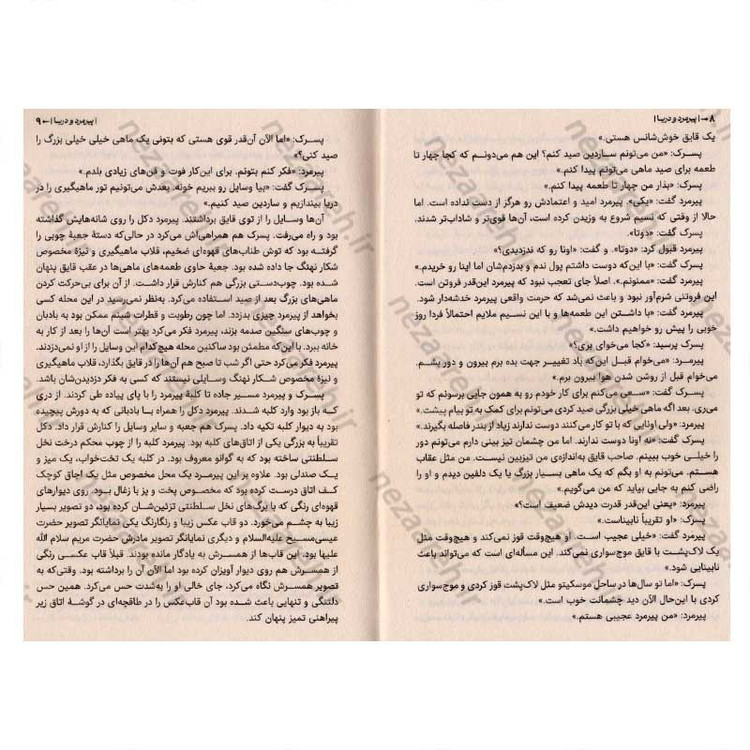 ۸ → | پیرمرد و دریا |
یک قایق خوش‌شانس هستی.»
پسرک: «من می‌تونم ساردین صید کنم؟ این هم می‌دونم که کجا چهار تا
طعمه برای صید ماهی می‌تونم پیدا کنم.»
پسرک: «بذار من چهار تا طعمه پیدا کنم.»
پیرمرد گفت: «یکی». پیرمرد امید و اعتمادش رو هرگز از دست نداده است. اما
حالا از وقتی که نسیم شروع به وزیدن کرده است، آن‌ها قوی‌تر و شاداب‌تر شدند.
پسرک گفت: «دوتا».
پیرمرد قبول کرد: «دوتا». و گفت: «اونا رو که ندزدیدی؟»
پسرک گفت: «با این‌که دوست داشتم پول ندم و بدزدم‌شان اما اینا رو خریدم.»
پیرمرد گفت: «ممنونم.». اصلاً جای تعجب نبود که پیرمرد این‌قدر فروتن است.
این فروتنی شرم‌آور نبود و باعث نمی‌شد که حرمت واقعی پیرمرد خدشه‌دار شود.
پیرمرد گفت: «با داشتن این طعمه‌ها و با این نسیم ملایم احتمالاً فردا روز
خوبی را پیش رو خواهیم داشت.»
پسرک پرسید: «کجا می‌خوای بری؟»
پیرمرد: «می‌خوام قبل این‌که باد تغییر جهت بده برم بیرون و دور بشم.
می‌خوام قبل از روشن شدن هوا بیرون برم.»
پسرک گفت: «سعی می‌کنم برای کار خودم رو به همون جایی برسونم که تو
می‌ری. بعد اگه ماهی خیلی بزرگی صید کردی می‌تونم برای کمک به تو بیام پیشت.»
پیرمرد: «ولی اونایی که با تو کار می‌کنند دوست ندارند زیاد از بندر فاصله بگیرند.»
پسرک گفت: «نه اونا دوست ندارند. اما من چشمان تیز بینی دارم می‌تونم دور
را خیلی خوب ببینم. صاحب قایق به‌اندازه‌ی من تیزبین نیست. من مثل عقاب
هستم. می‌تونم به او بگم که یک ماهی بسیار بزرگ یا یک دلفین دیدم و او را
راضی کنم به جایی بیاید که من می‌گویم.»
پیرمرد: «یعنی این‌قدر قدرت دیدش ضعیف است؟»
پسرک: «او تقریباً نابیناست.»
پیرمرد گفت: «خیلی عجیب است. او هیچ‌وقت قوز نمی‌کند و هیچ‌وقت مثل
یک لاک‌پشت با قایق موج‌سواری نمی‌کند. این مسأله‌ای است که می‌تواند باعث
نابینایی شود.»
پسرک: «اما تو سال‌ها در ساحل موسکیتو مثل لاک‌پشت قوز کردی و موج‌سواری
کردی با این‌حال الآن دید چشمانت خوب است.»
پیرمرد: «من پیرمرد عجیبی هستم.»
| پیرمرد و دریا | ← ۹
پسرک: «اما الآن آن‌قدر قوی هستی که بتونی یک ماهی خیلی خیلی بزرگ را
صید کنی؟»
پیرمرد: «فکر کنم بتونم. برای این‌کار فوت و فن‌های زیادی بلدم.»
پسرک گفت: «بیا وسایل رو ببریم خونه. بعدش می‌تونیم تور ماهیگیری را در
دریا بیندازیم و ساردین صید کنیم.»
آن‌ها وسایل را از توی قایق برداشتند. پیرمرد دکل را روی شانه‌هایش گذاشته
بود و راه می‌رفت. پسرک هم همراهی‌اش می‌کرد در حالی‌که دستهٔ جعبهٔ چوبی را
گرفته بود که توش طناب‌های قهوه‌ای ضخیم، قلاب ماهیگیری و نیزهٔ مخصوص
شکار نهنگ جا داده شده بود. جعبهٔ حاوی طعمه‌های ماهی‌ها در عقب قایق پنهان
شده بود. چوب‌دستی بزرگی هم کنارش قرار داشت. از آن برای بی‌حرکت کردن
ماهی‌های بزرگ بعد از صید استفاده می‌کرد. به‌نظر نمی‌رسید در این محله کسی
بخواهد از پیرمرد چیزی بدزدد. اما چون رطوبت و قطرات شبنم ممکن بود به بادبان
و چوب‌های سنگین صدمه بزند، پیرمرد فکر می‌کرد بهتر است آن‌ها را بعد از کار به
خانه ببرد. با این‌که مطمئن بود ساکنین محله هیچ‌کدام این وسایل را از او نمی‌دزدند.
پیرمرد فکر می‌کرد حتی اگر شب تا صبح هم آن‌ها را در قایق بگذارد، قلاب ماهیگیری
و نیزهٔ مخصوص شکار نهنگ وسایلی نیستند که کسی به فکر دزدیدن‌شان باشد.
پسرک و پیرمرد مسیر جاده تا کلبهٔ پیرمرد را با پای پیاده طی کردند. از دری
که باز بود وارد کلبه شدند. پیرمرد دکل را همراه با بادبانی که به دورش پیچیده
بود به دیوار کلبه تکیه داد. پسرک هم جعبه و سایر وسایل را کنارش قرار داد. دکل
تقریباً به بزرگی یکی از اتاق‌های کلبه بود. پیرمرد کلبه را از چوب محکم درخت نخل
سلطنتی ساخته بود که به گوانو معروف بود. در کلبه یک تخت‌خواب، یک میز و
یک صندلی بود. علاوه بر این پیرمرد یک محل مخصوص مثل یک اجاق کوچک
کف اتاق درست کرده بود که مخصوص پخت و پز با زغال بود. روی دیوارهای
قهوه‌ای رنگی که با برگ‌های نخل سلطنتی تزئین‌شان کرده بود، دو تصویر بسیار
زیبا به چشم می‌خورد. دو قاب عکس زیبا و رنگارنگ یکی نمایانگر تصویر حضرت
عیسی‌مسیح علیه‌السلام و دیگری نمایانگر تصویر مادرش حضرت مریم سلام الله
علیها بود. این قاب‌ها از همسرش به یادگار مانده بودند. قبلاً قاب عکسی رنگی
از همسرش هم روی دیوار آویزان کرده بود اما الآن آن را برداشته بود. وقتی‌که به
تصویر همسرش نگاه می‌کرد، جای خالی او را به‌شدت حس می‌کرد. همین حس
دلتنگی و تنهایی باعث شده بود آن قاب‌عکس را در طاقچه‌ای در گوشهٔ اتاق زیر
پیراهنی تمیز پنهان کند.
nezareh.ir